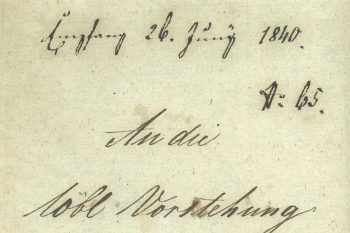 Empfang 26. Juny 1840.
No: 65.
An die
löbl Vorstehung